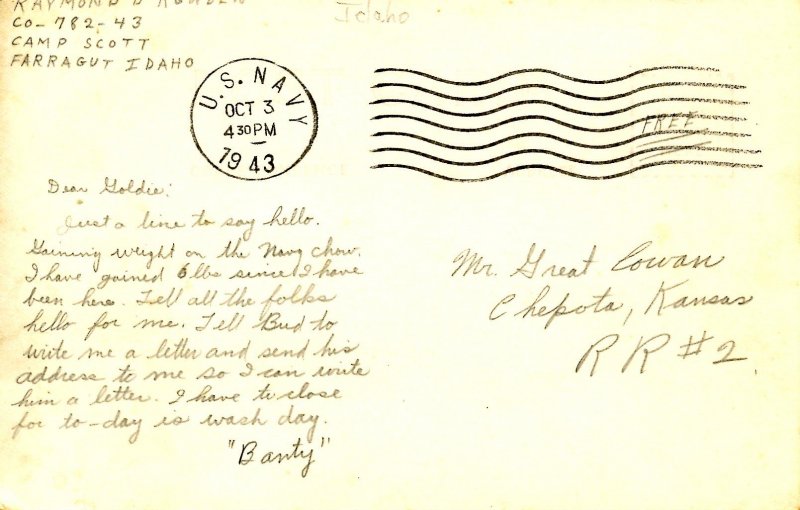 RAYMOND D
CO-782-43
CAMP SCOTT
FARRAGUT IDAHO
Idaho
U.S. NAVY
OCT 3
4 30 PM
1943
FREE
Dear Goldie:
Just a line to say hello.
Gaining weight on the Navy chow.
I have gained 6 lbs since I have
been here. Tell all the folks
hello for me. Tell Bud to
write me a letter and send his
address to me so I can write
him a letter. I have to close
for to-day is wash day.
"Banty"
Mr. Great Cowan
Chepota, Kansas
RR #2